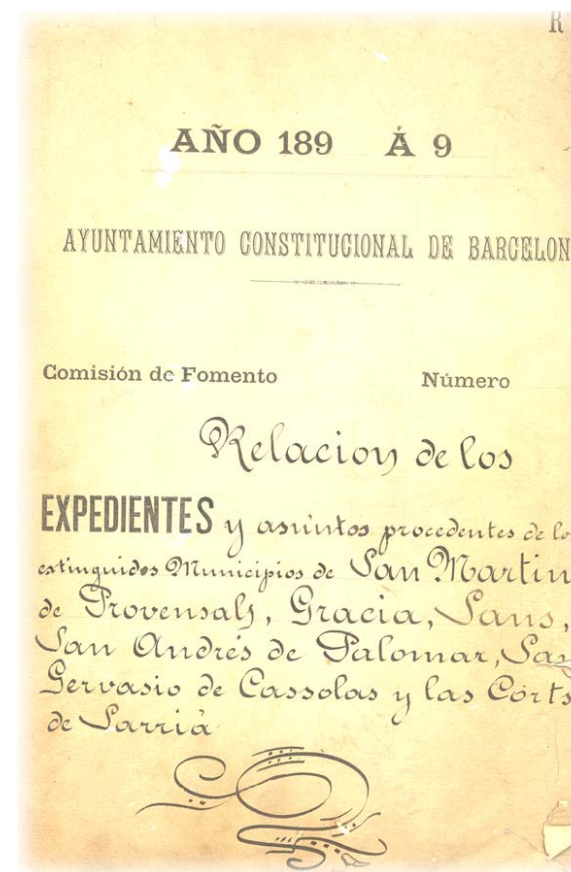 R
AÑO 189 Á 9
AYUNTAMIENTO CONSTITUCIONAL DE BARCELON
Comisión de Fomento Número
Relacion de los
EXPEDIENTES y asuntos procedentes de lo
extinguidos Municipios de San Martin
de Provensals, Gracia, Sans,
San Andrés de Palomar, San
Gervasio de Cassolas y las Córts
de Sarriá